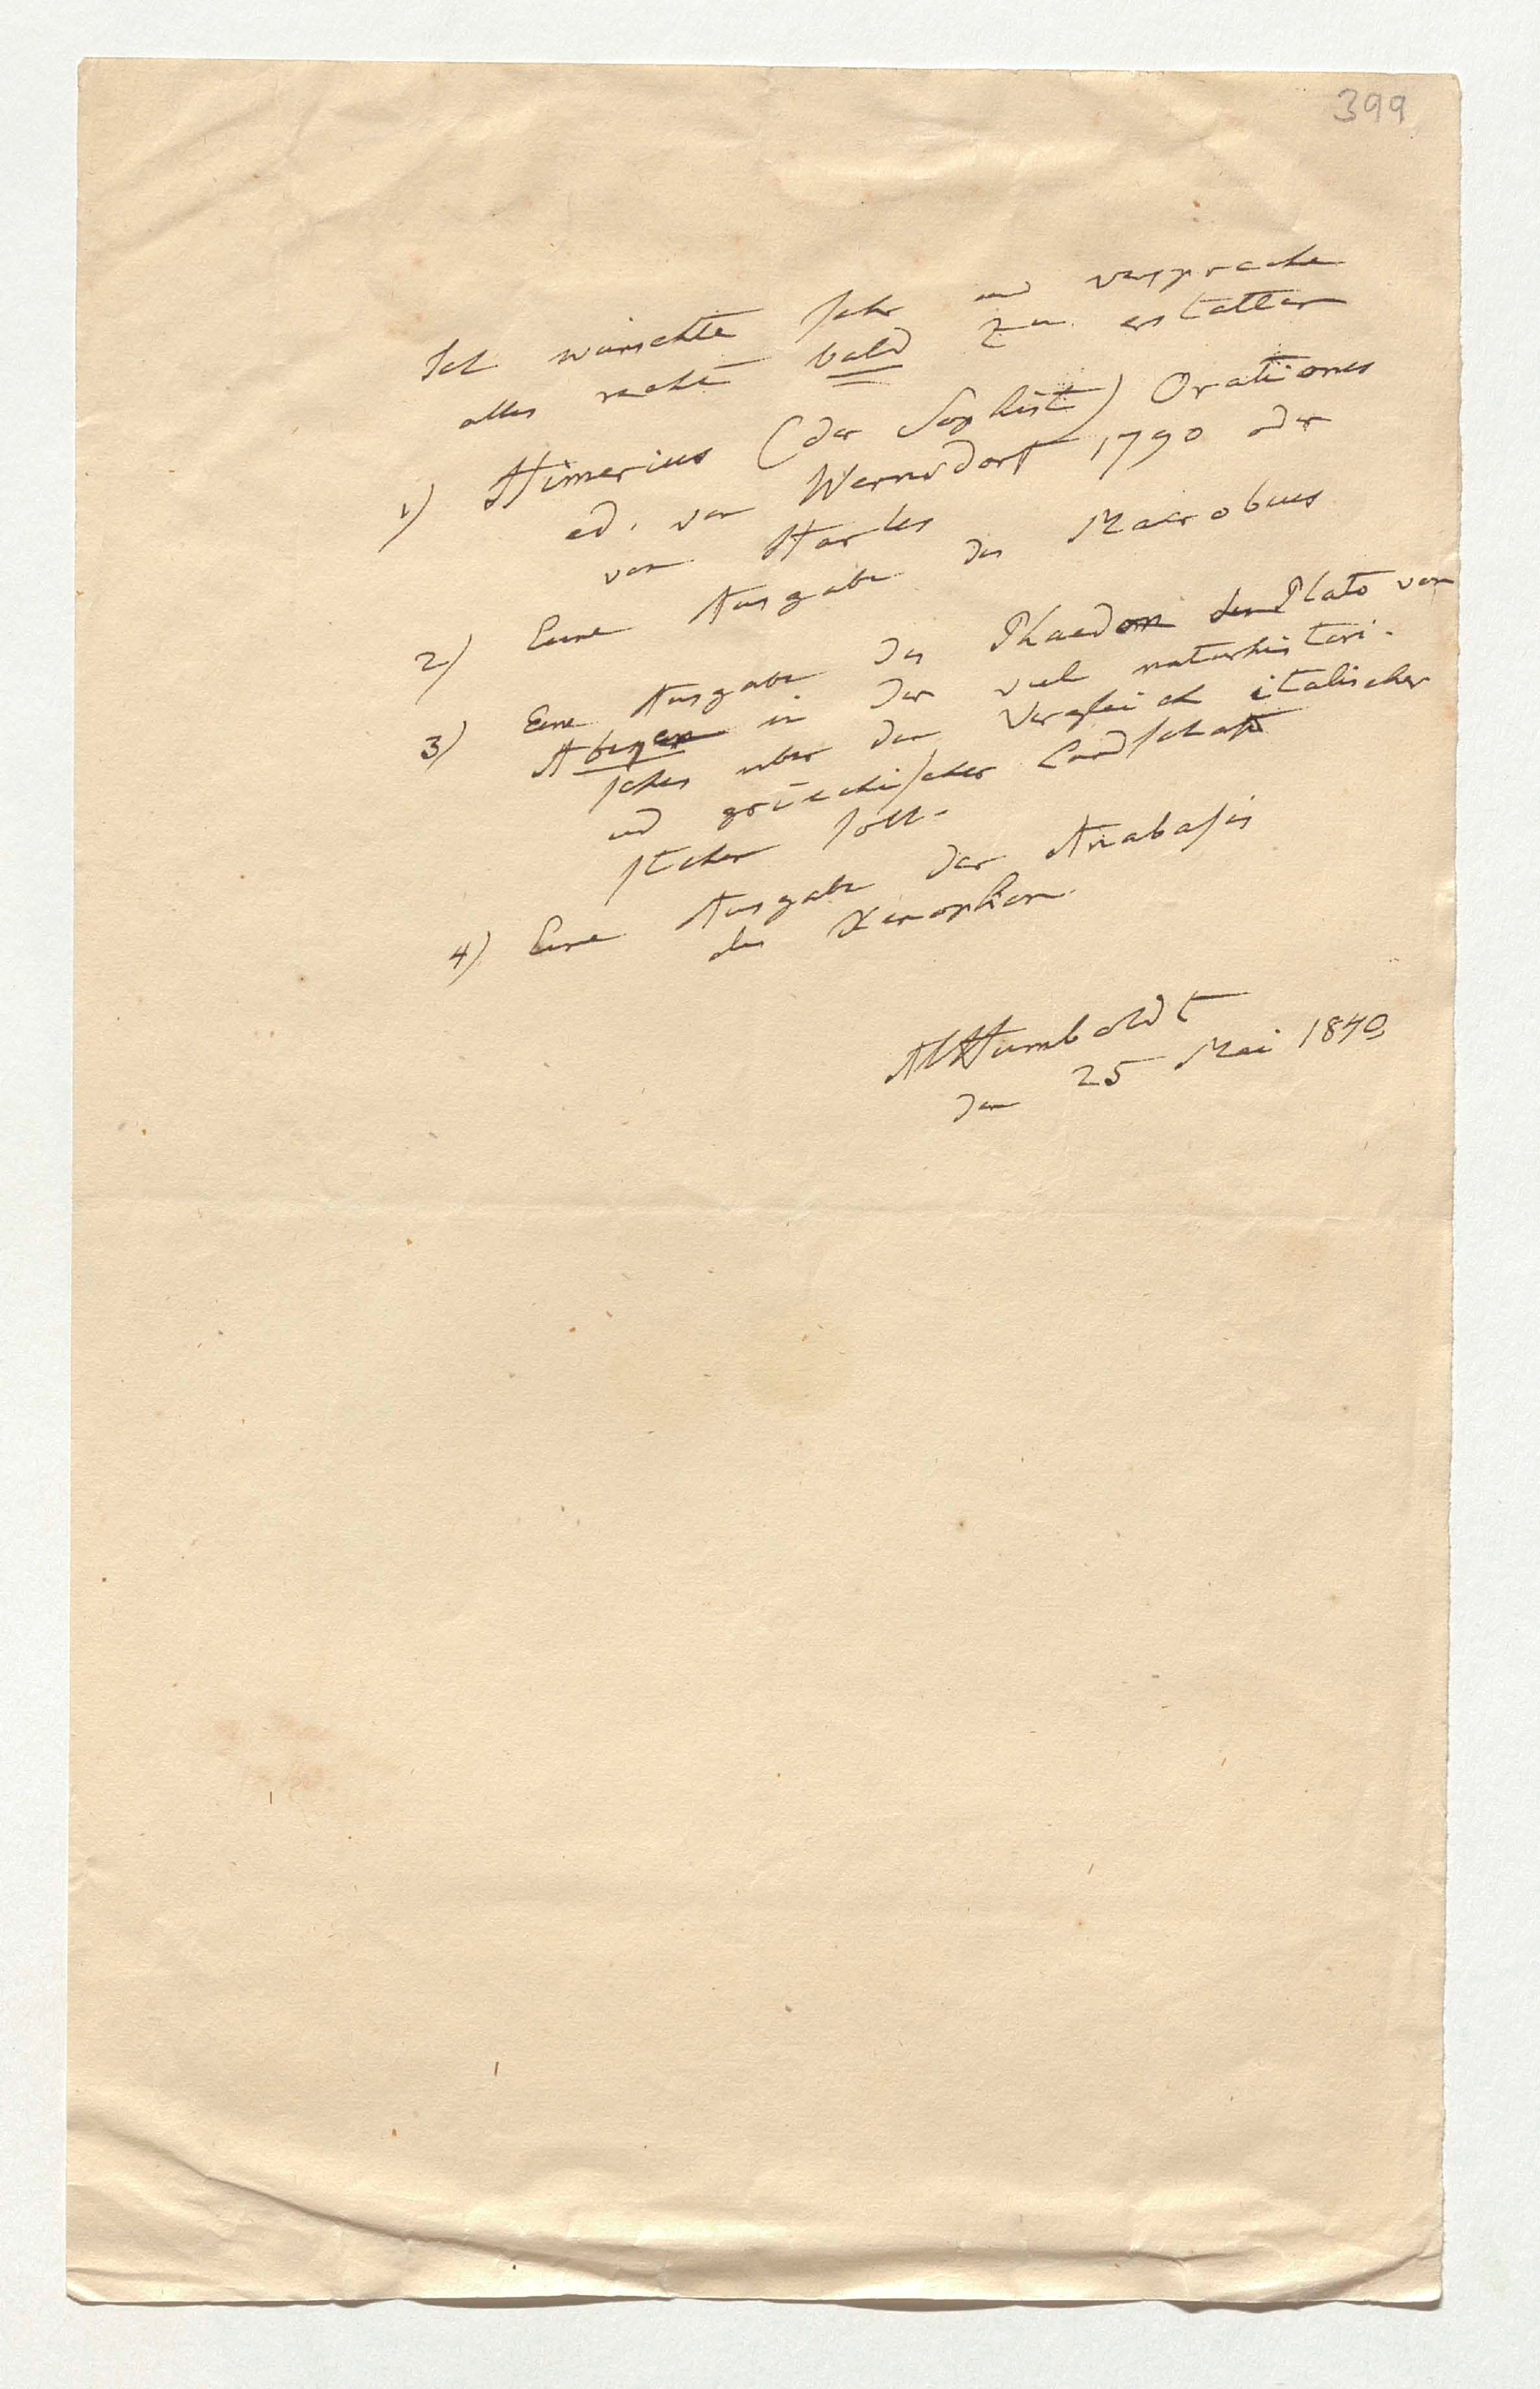 399
Ich wünschte sehr und verspreche
alles recht bald zu erstatten
1) Himerius (der Sophist) Orationes
ed. von Wernsdorf 1790 oder
von Harles
2) Eine Ausgabe des Macrobius
3) Eine Ausgabe des Phaedon des Plato von
in der viel naturhistori-
sches über den Vergleich italischer
und griechischer Landschaft
stehen soll.
4) Eine Ausgabe der Anabasis
des Xenophon.
AlHumboldt
den 25 Mai 1840